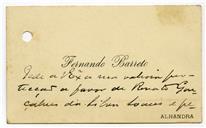 Fernando Barreto
Pede a V. Exa a sua valiosa pro-
tecção a favor de Renato Gon-
çalves da Silva
ALHANDRA